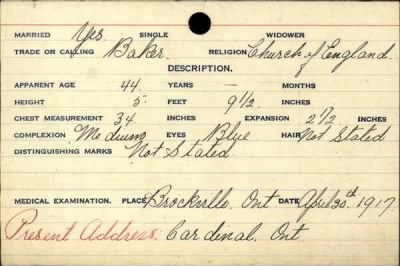 MARRIED Yes SINGLE WIDOWER
TRADE OR CALLING Baker. RELIGION Church of England.
DESCRIPTION.
APPARENT AGE 44 YEARS — MONTHS
HEIGHT 5 FEET 9 1/2 INCHES
CHEST MEASUREMENT 34 INCHES EXPANSION 2 1/2 INCHES
COMPLEXION Medium EYES Blue HAIR Not Stated
DISTINGUISHING MARKS Not Stated
MEDICAL EXAMINATION. PLACE Brockville. Ont DATE April 30th 1917.
Present Address. Cardinal. Ont